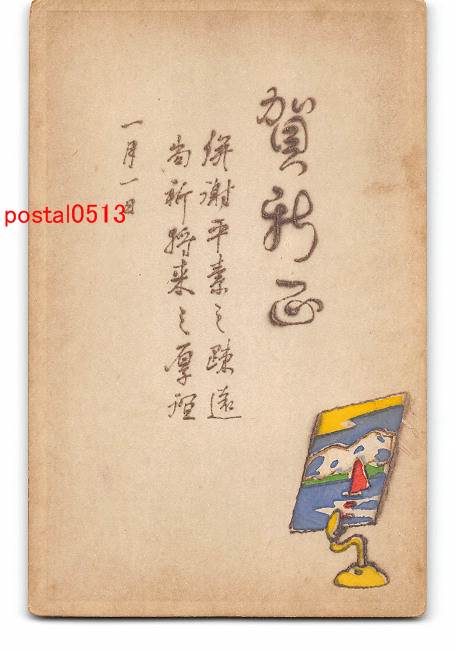 賀新正
併謝平素之疎遠
尚祈将来之厚誼
一月一日
postal0513